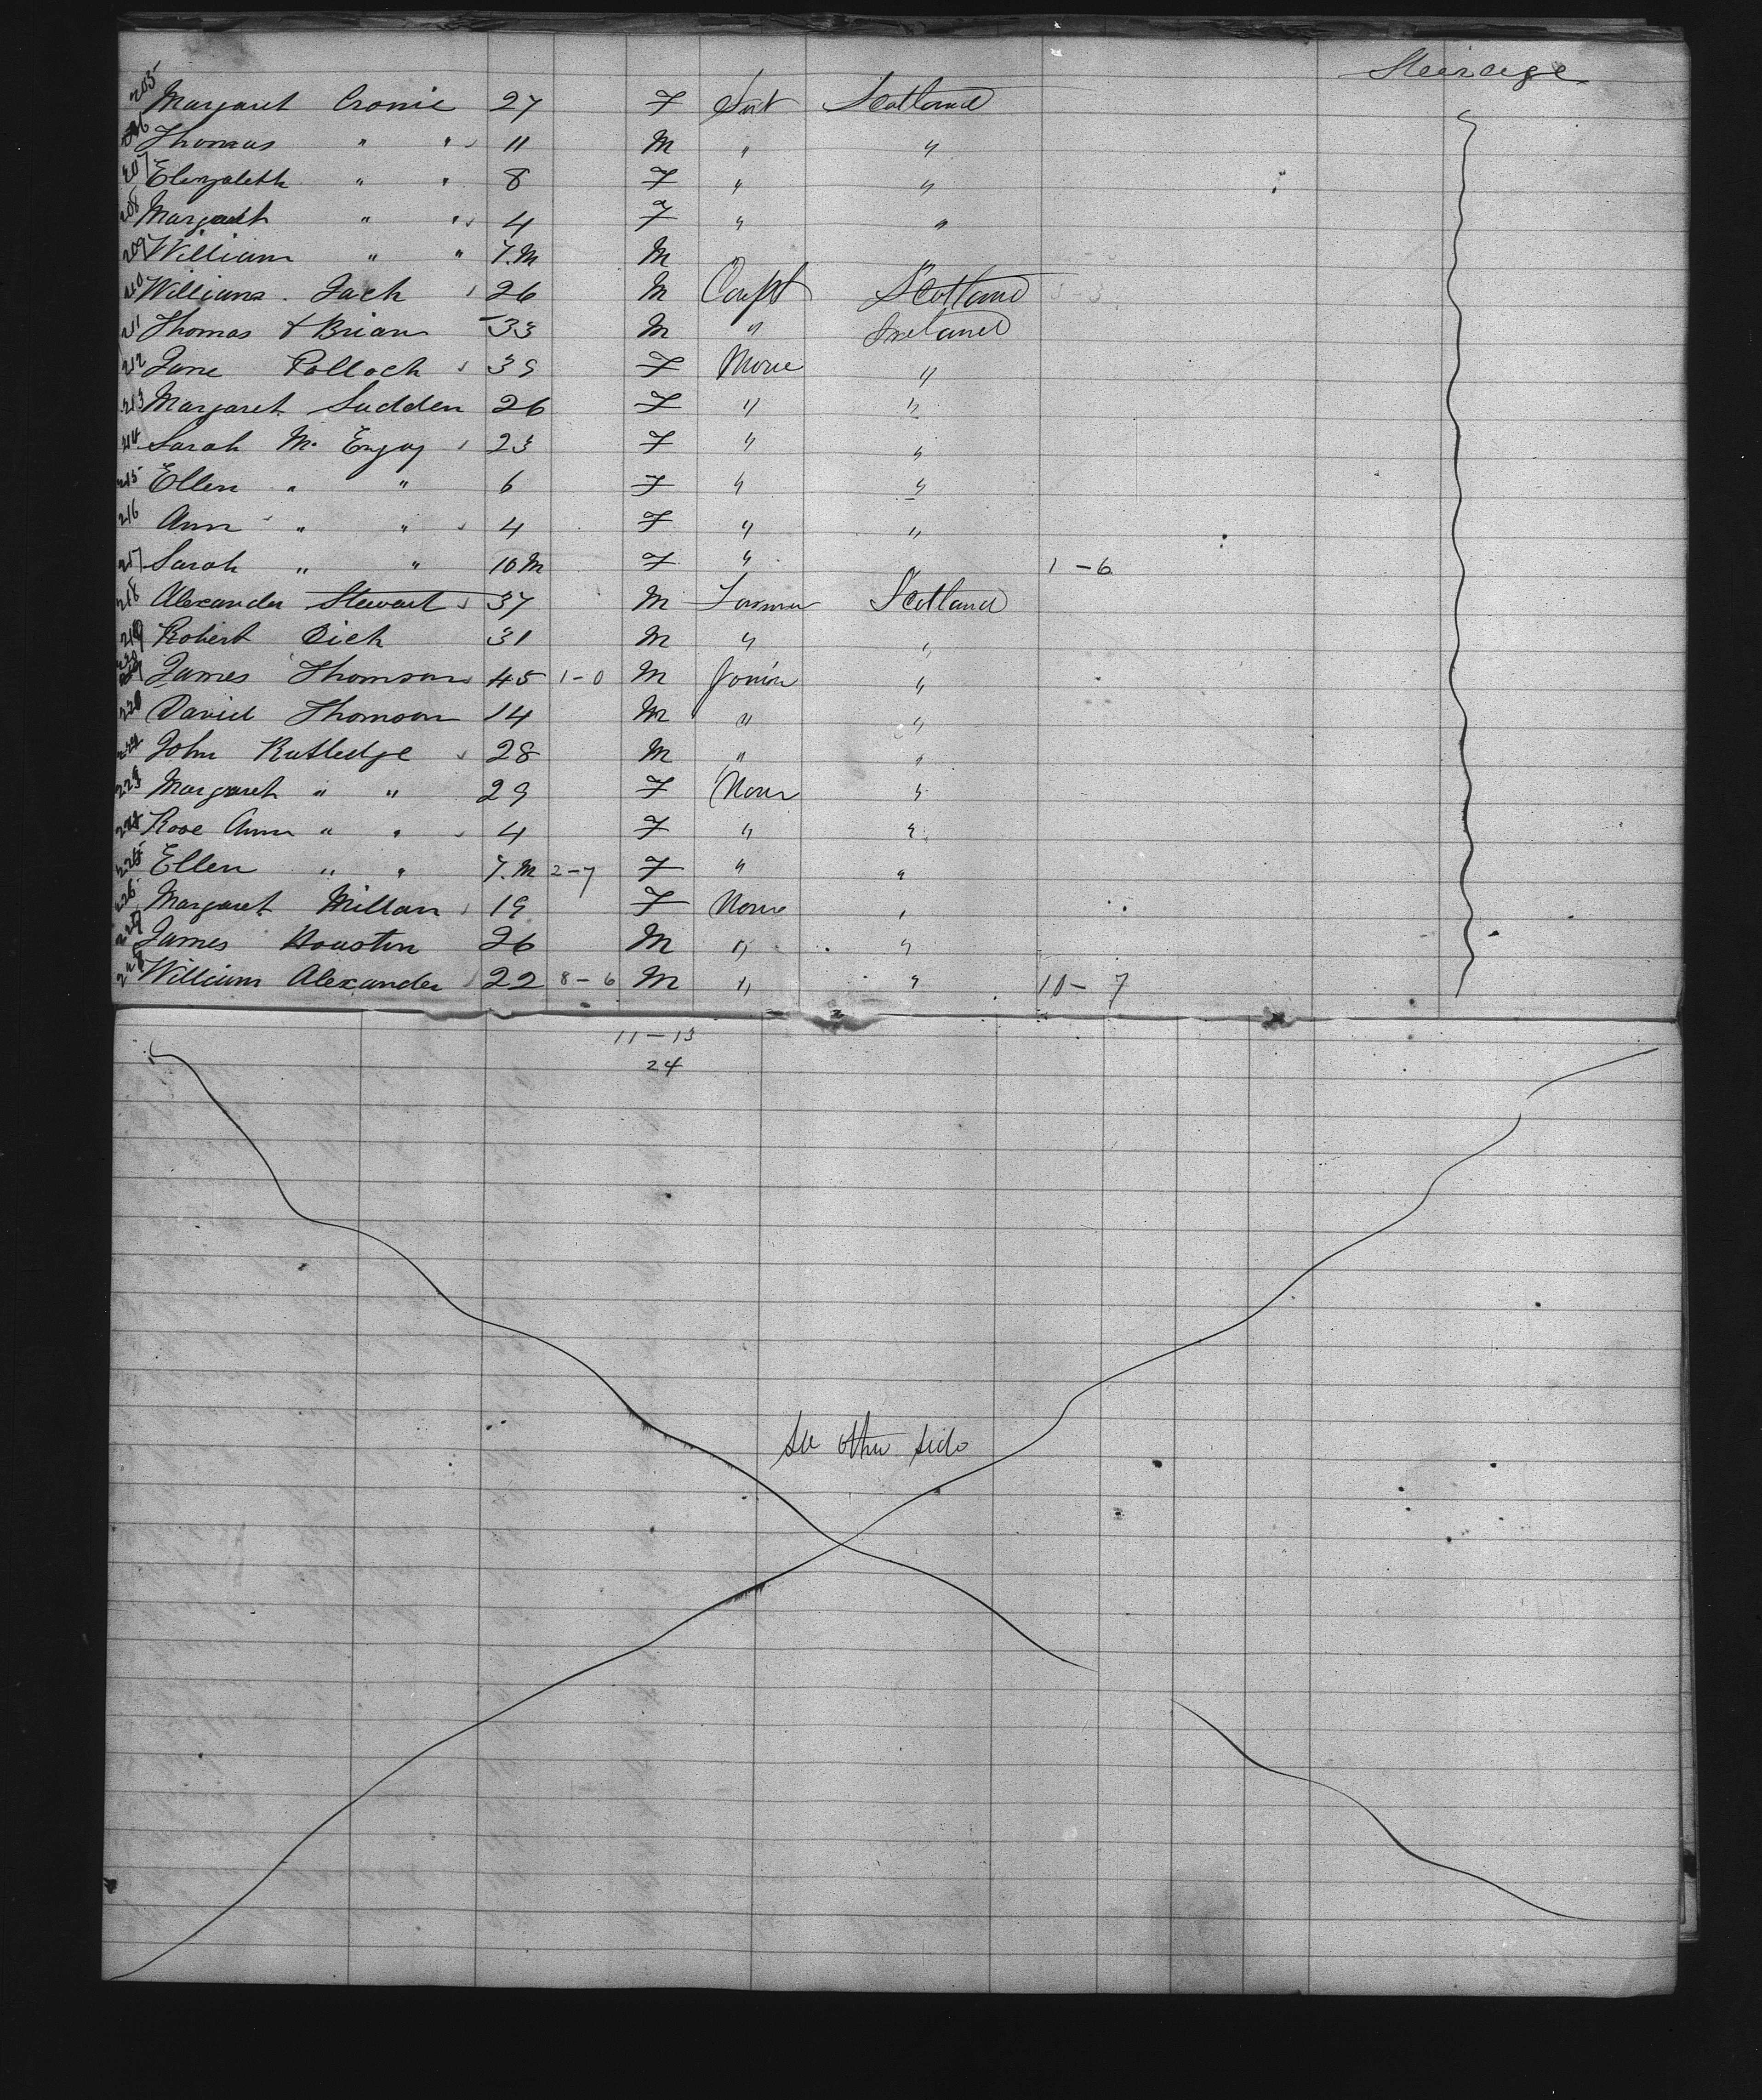 Steerage
205 Margaret Cronie 27 F Scotland
206 Thomas " " 11 M " "
207 Elizabeth " " 8 F " "
208 Margaret " " 4 F " "
209 William " " 7.M M " "
210 William Jack 26 M Carpt Scotland 3-3
211 Thomas O'Brian 33 M " Ireland
212 Jane Pollock 39 F None "
213 Margaret Sudden 26 F " "
214 Sarah Mc 23 F " "
215 Ellen " " 6 F " "
216 Ann " " 4 F " "
217 Sarah " " 10 M F " 1-6
218 Alexander Stewart 37 M Farmer Scotland
219 Robert Dick 31 M " "
James Thomson 45 1-0 M Joiner "
David Thomson 14 M " "
John Rutledge 28 M " "
223 Margaret " " 29 F None "
224 Rose Ann " " 4 F " "
225 Ellen " " 7.M 2-7 F " "
226 Margaret Millan 19 F None "
227 James Houston 26 M " "
228 William Alexander 22 8-6 M " " 10-7
11-13
24
See other side